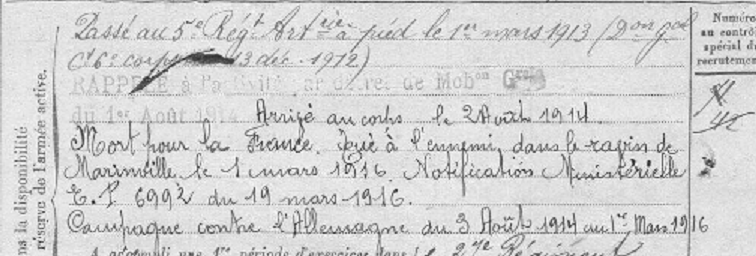 Passé au 5e Régt Artrie à pied le 1er mars 1913 (Don gal
Ct 6e corps 13 déc. 1912)
Numéro
au contrôle
spécial du
recrutement
RAPPELÉ à l'activité par décret de Mobon Grale
du 1er Août 1914 Arrivé au corps le 2 Août 1914.
Mort pour la France. Tué à l'ennemi dans le ravin de
Marinville le 1 mars 1916. Notification Ministérielle
E. P 6992 du 19 mars 1916.
Campagne contre l'Allemagne du 3 Août 1914 au 1er Mars 1916
A accompli une 1re période d'exercices dans le 27e Régiment
ns la disponibilité
réserve de l'armée active.